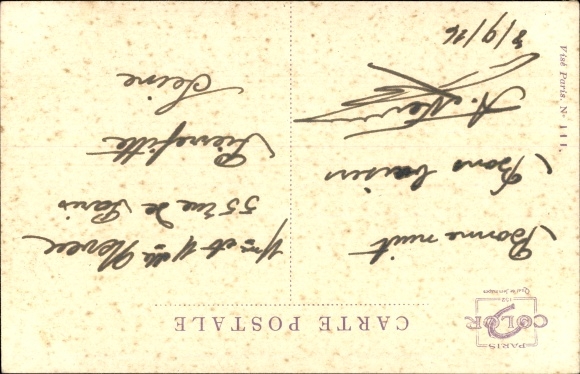 CARTE POSTALE
PARIS
COLOR
152
Bonne nuit
Bons baisers
8/9/16
Mme et Mlle
55 rue de Paris
Pierrefitte
Seine
Visé Paris. N° 111.